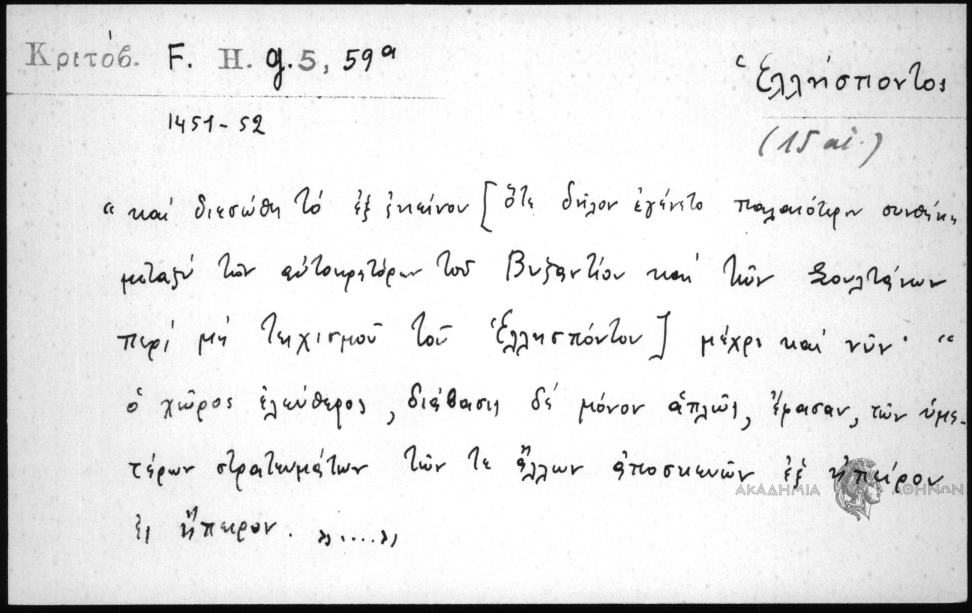 Κριτόβ. F. H. g. 5, 59ᵃ
Ἑλλήσποντος
1451-52
(15 αἰ.)
“ καὶ διεσώθη τὸ ἐξ ἐκείνου [ ὅτε δῆλον ἐγένετο παλαιοτέρα συνθήκη
μεταξὺ τῶν αὐτοκρατόρων τοῦ Βυζαντίου καὶ τῶν Σουλτάνων
περὶ μὴ τειχισμοῦ τοῦ Ἑλλησπόντου ] μέχρι καὶ νῦν · “
ὁ χῶρος ἐλεύθερος, διάβασις δὲ μόνον ἁπλῶς, ἔφασαν, τῶν ὑμε-
τέρων στρατευμάτων τῶν τε ἄλλων ἀποσκευῶν ἐξ ἠπείρου
ἐς ἤπειρον. »....»,
ΑΚΑΔΗΜΙΑ ΑΘΗΝΩΝ